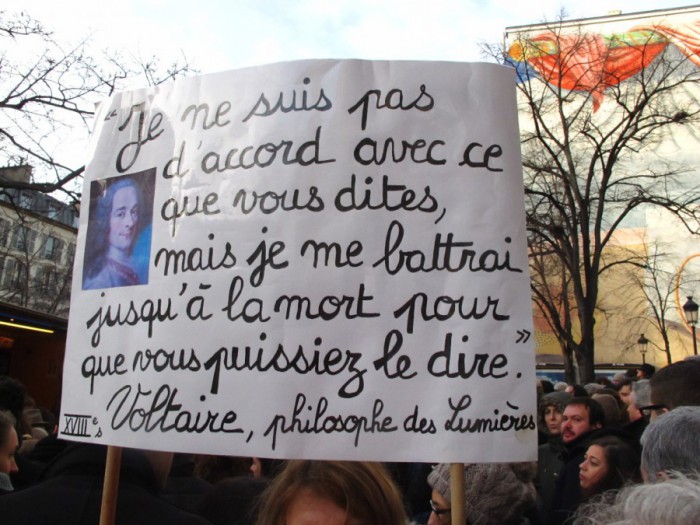 "Je ne suis pas
d'accord avec ce
que vous dites,
mais je me battrai
jusqu'à la mort pour
que vous puissiez le dire."
Voltaire, philosophe des Lumières
XVIIIe s